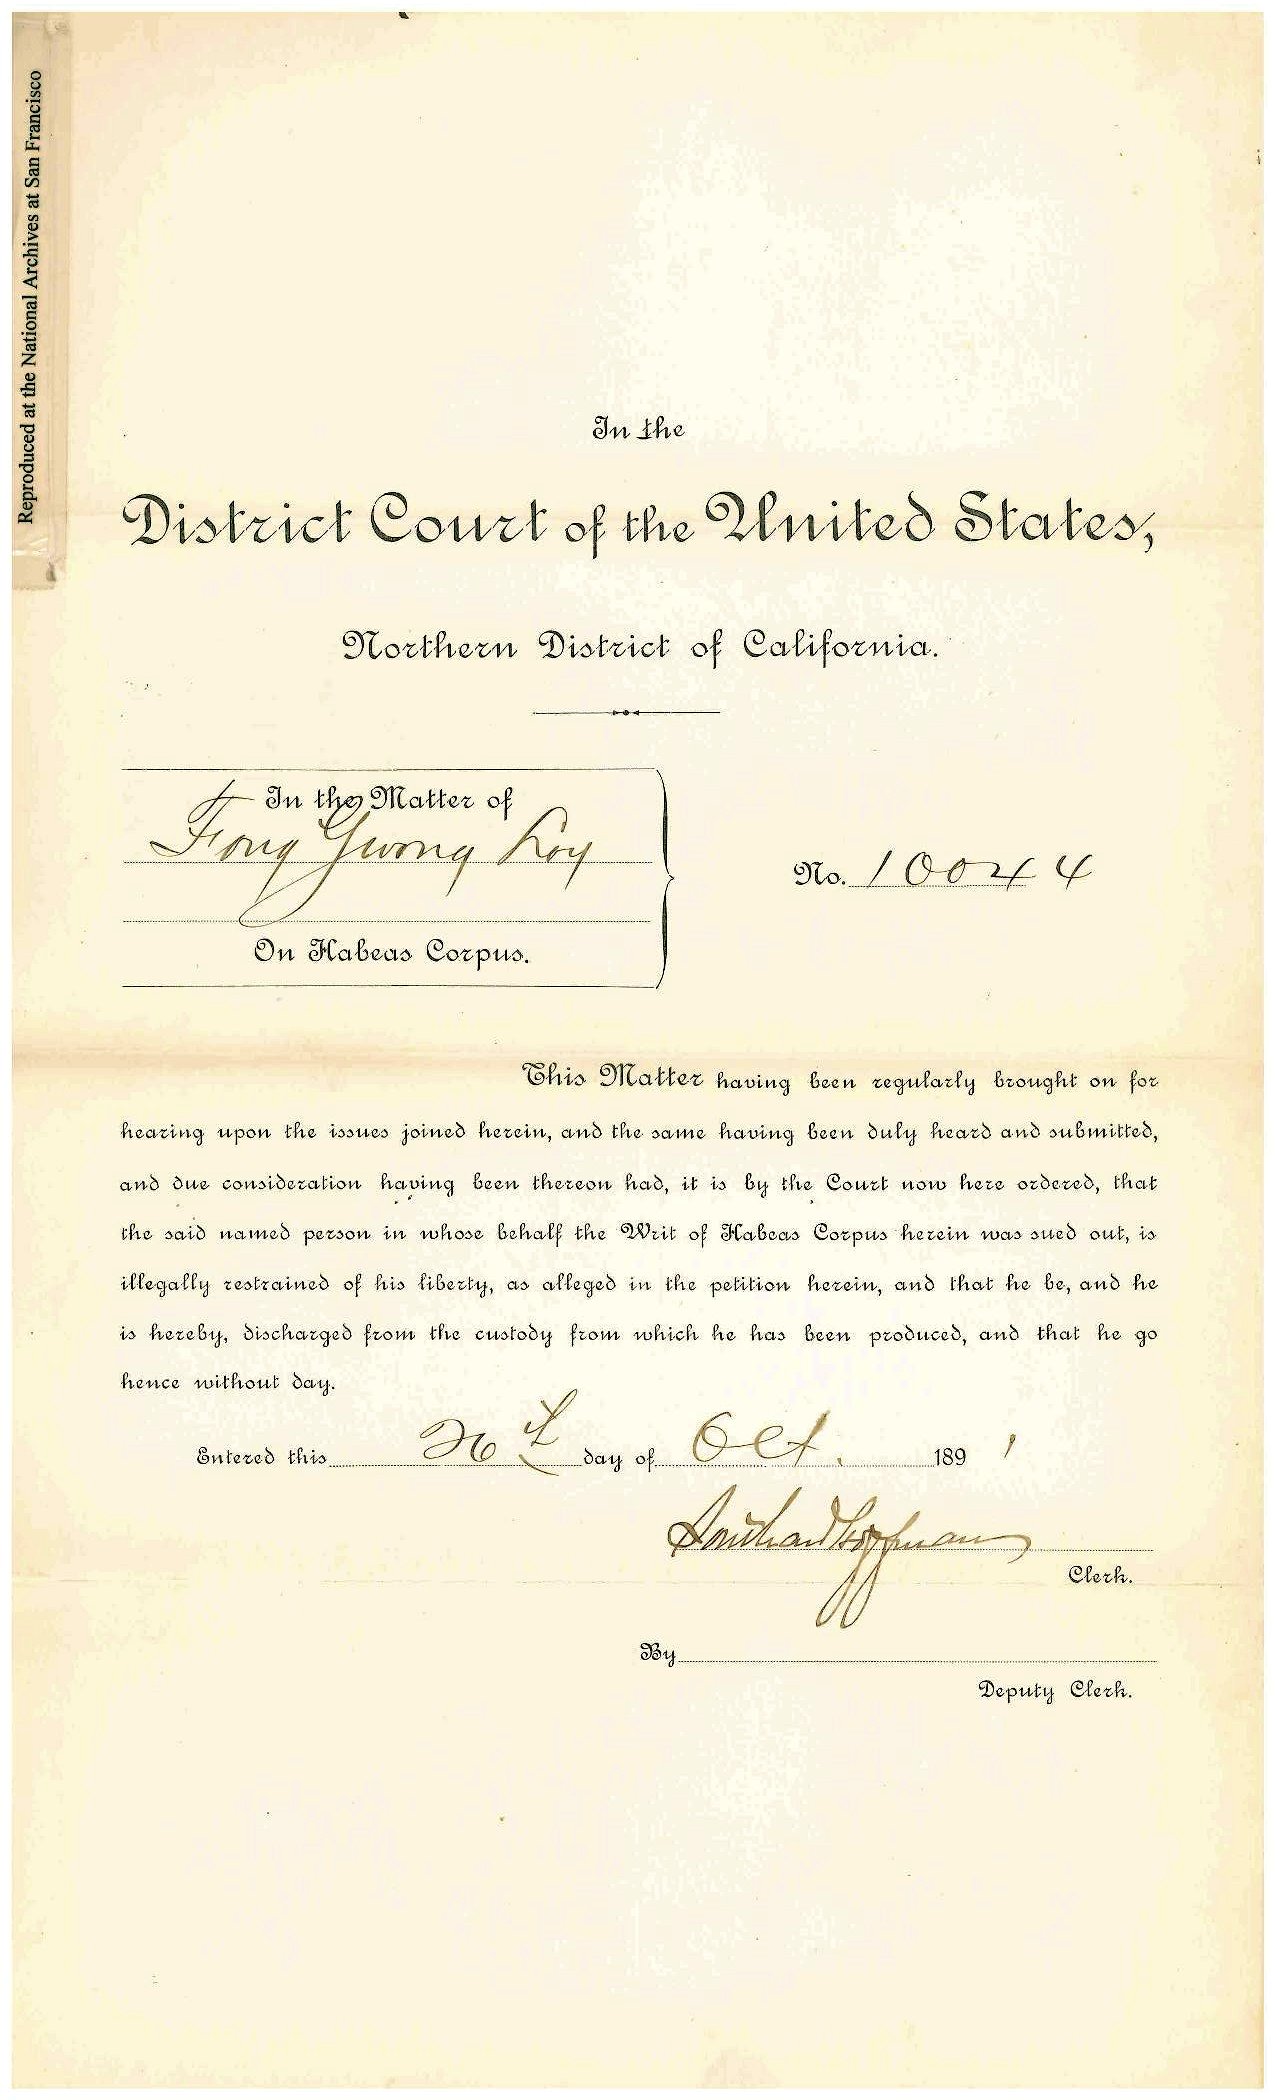 Reproduced at the National Archives at San Francisco
In the
District Court of the United States,
Northern District of California.
In the Matter of
Fong Gwong Koy
On Habeas Corpus.
No. 10044
This Matter having been regularly brought on for
hearing upon the issues joined herein, and the same having been duly heard and submitted,
and due consideration having been thereon had, it is by the Court now here ordered, that
the said named person in whose behalf the Writ of Habeas Corpus herein was sued out, is
illegally restrained of his liberty, as alleged in the petition herein, and that he be, and he
is hereby, discharged from the custody from which he has been produced, and that he go
hence without day.
Entered this 26th day of Oct. 1891
Southard Hoffman
Clerk.
By
Deputy Clerk.